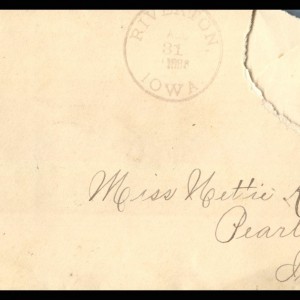 RIVERTON,
31
IOWA
Miss Nettie
Pearl